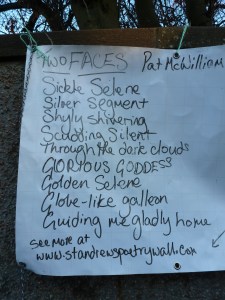 TWO FACES Pat McWilliam
Sickle Selene
Silver Segment
Shyly shivering
Scudding Silent
Through the dark clouds
GLORIOUS GODDESS
Golden Selene
Glove-like galleon
Guiding me gladly home
see more at
www.standrewspoetrywall.com